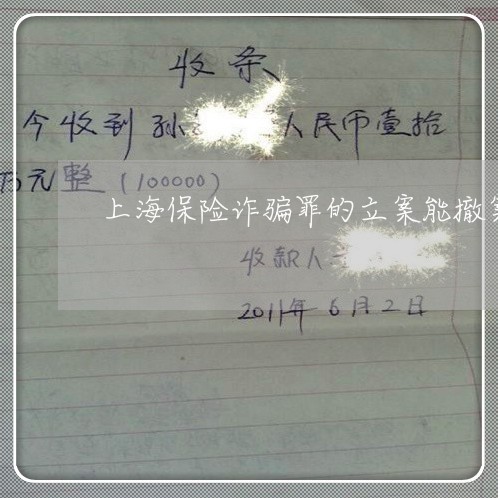 收条
今收到孙 人民币壹拾
万元整(100000)
上海保险诈骗罪的立案能撤
收款人
2011年6月2日